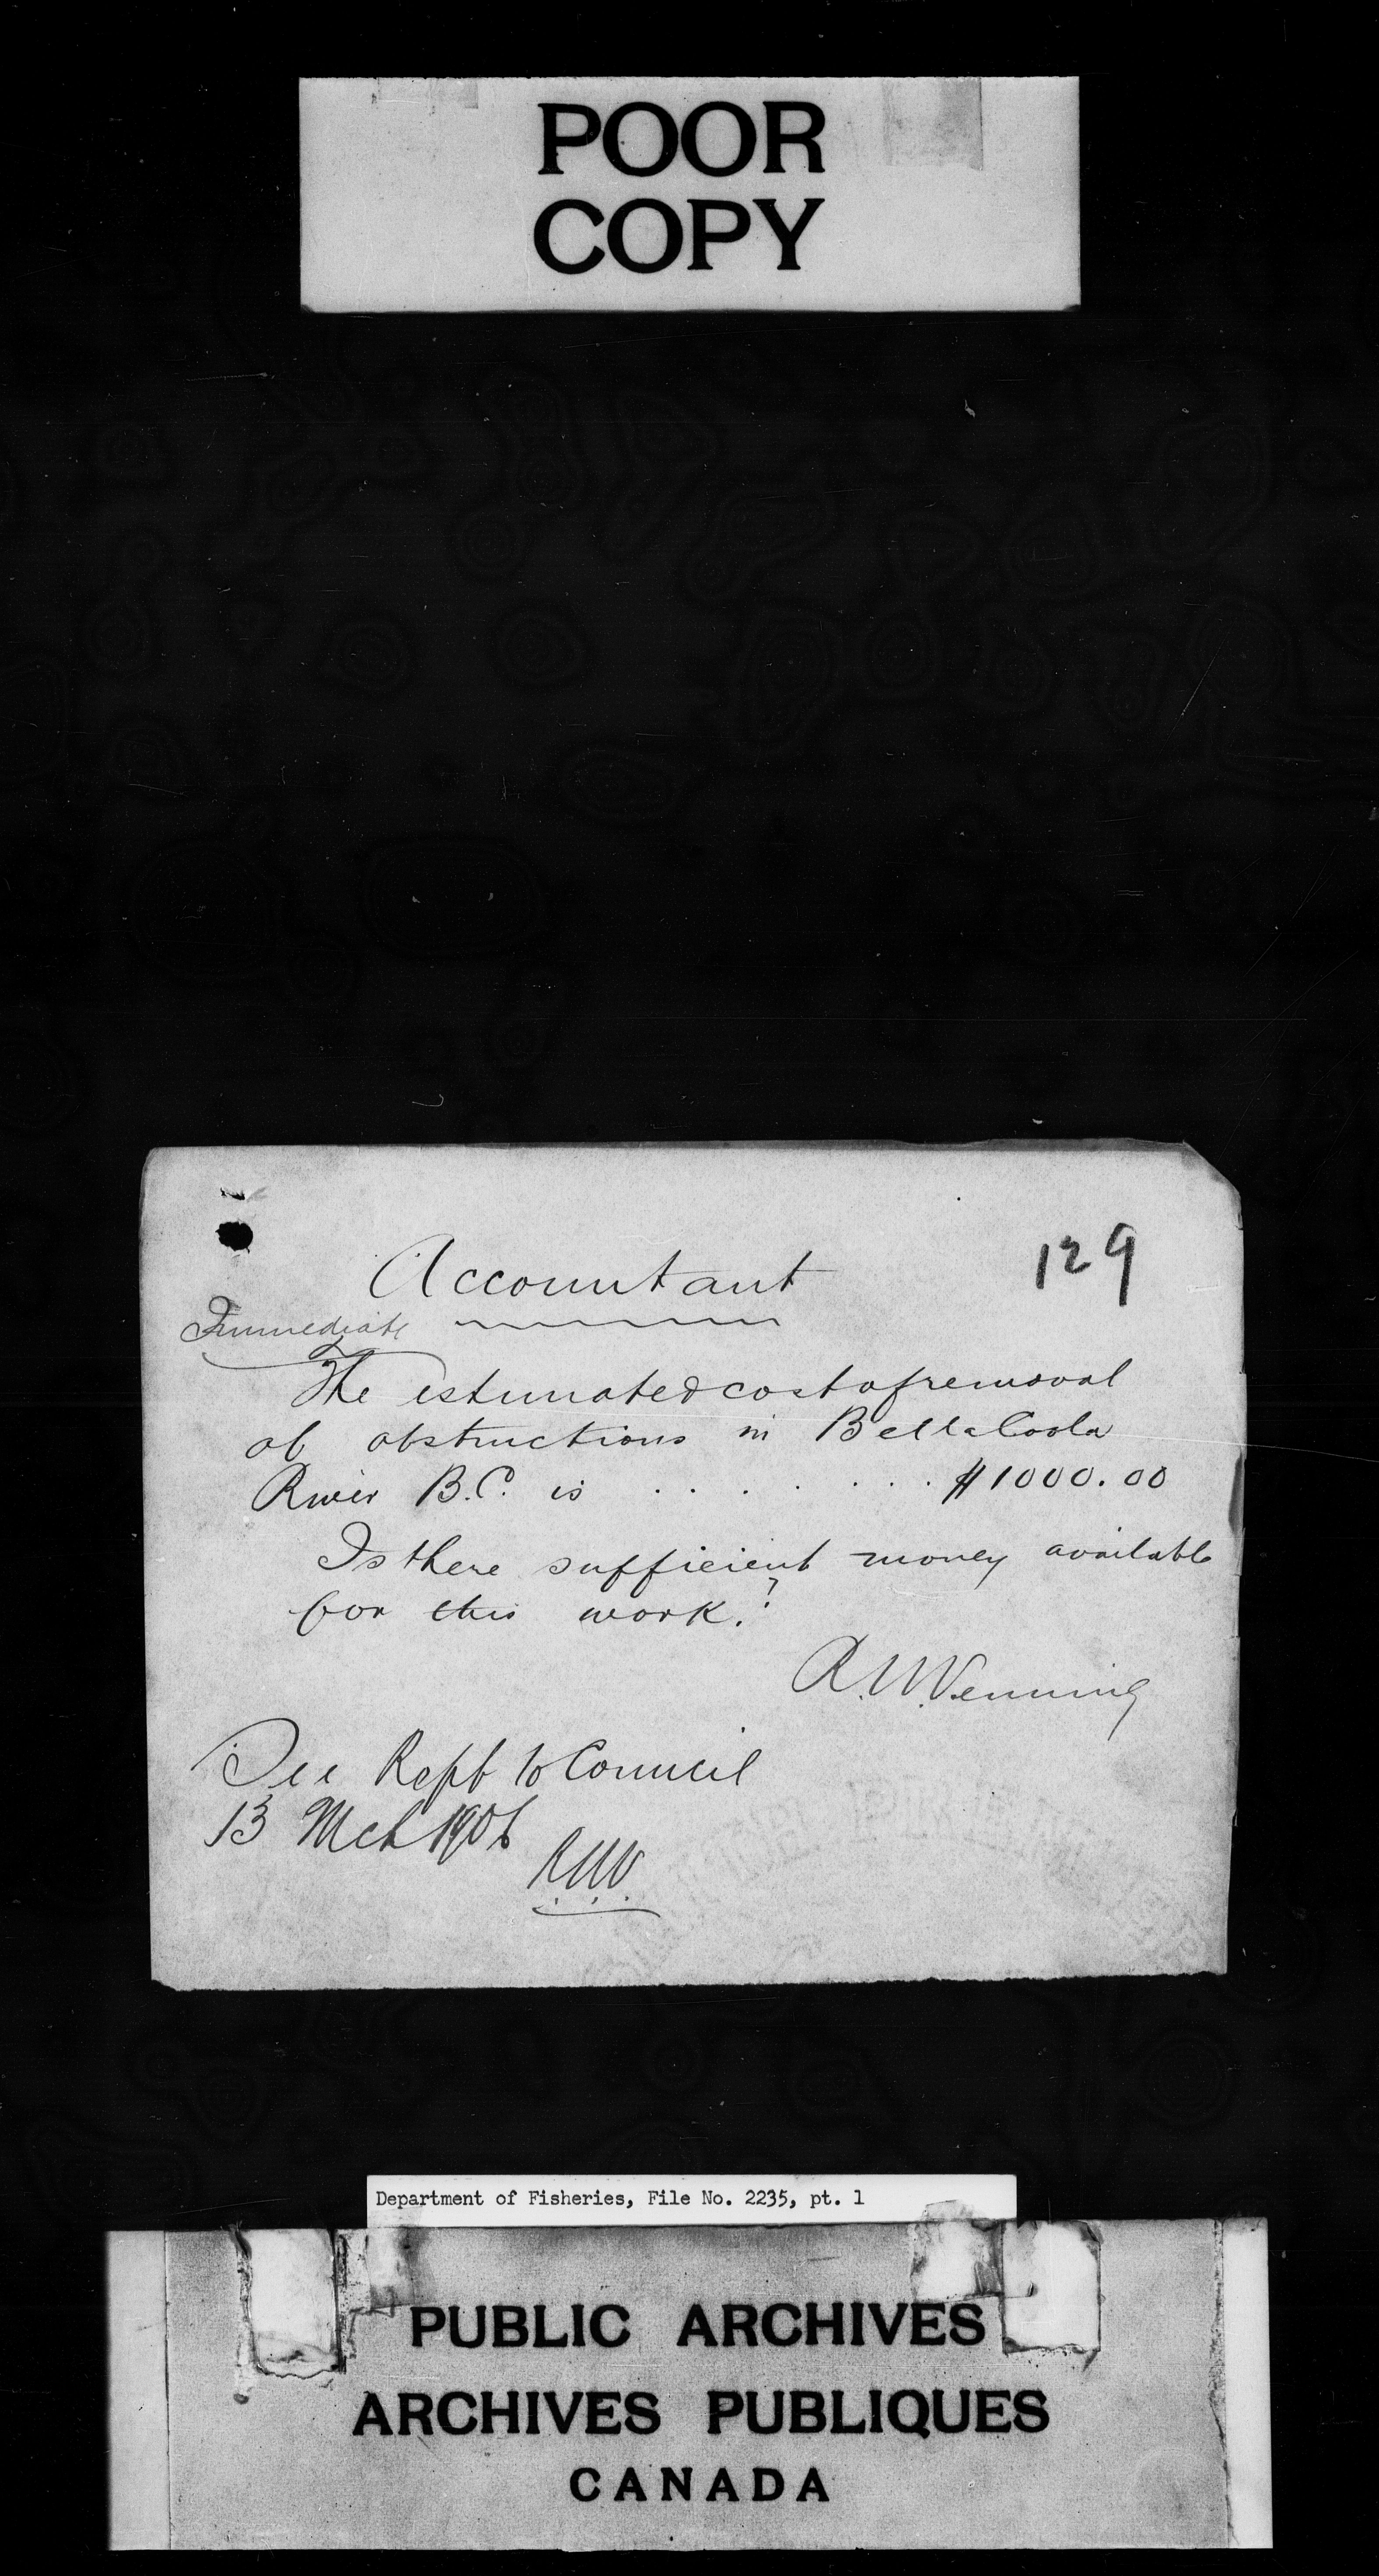 POOR
COPY
129
Accountant
Immediate
The estimated cost of removal
of obstructions in Bella Coola
River B.C. is . . . . . . . $1000.00
Is there sufficient money available
for this work?
R.N.Venning
See Rept to Council
13 Mch 1906
R.N.V.
Department of Fisheries, File No. 2235, pt. 1
PUBLIC ARCHIVES
ARCHIVES PUBLIQUES
CANADA